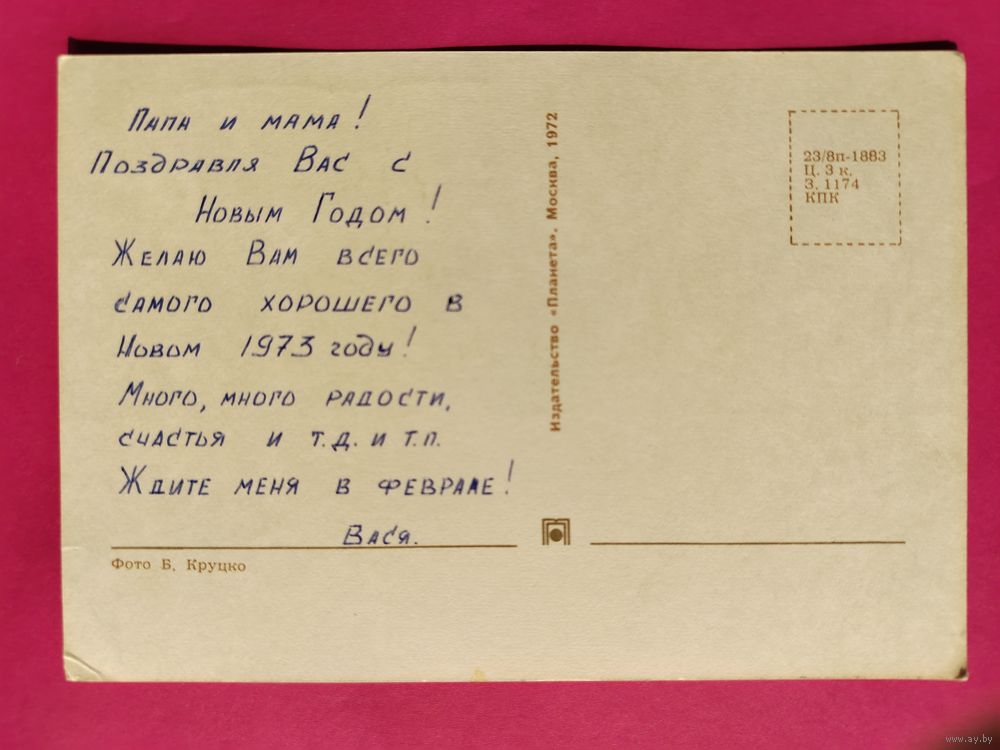 Папа и мама!
Поздравля Вас с
Новым Годом!
Желаю Вам всего
самого хорошего в
Новом 1973 году!
Много, много радости,
счастья и т.д. и т.п.
Ждите меня в феврале!
Вася.
Фото Б. Круцко
Издательство «Планета». Москва, 1972
23/8п-1883
Ц. 3 к.
З. 1174
КПК
www.ay.by